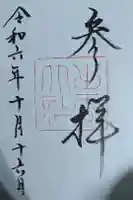 参拝
令和六年十月十六日